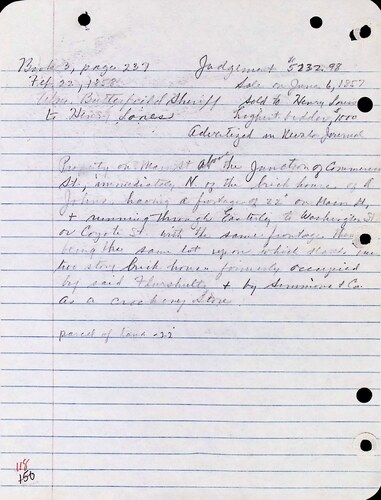 Book 3, page 237 Judgement $5232.98
Feb 22, 1858 Sale on June 6, 1857
Butterfield Sheriff Sold to Henry
to Henry highest bidder, 1000
Advertized in Journal
Property on Main St the Junction of Commercial
St., immediately N of the brick house of A
Johns having a frontage of 22' on Main St,
+ running through Easterly to Washington St
or Coyote St with the same frontage
being the same lot upon which stands
two story brick house formerly occupied
by said + by Simmons & Co
as a crockery Store
parcel of land - 22'
118
150